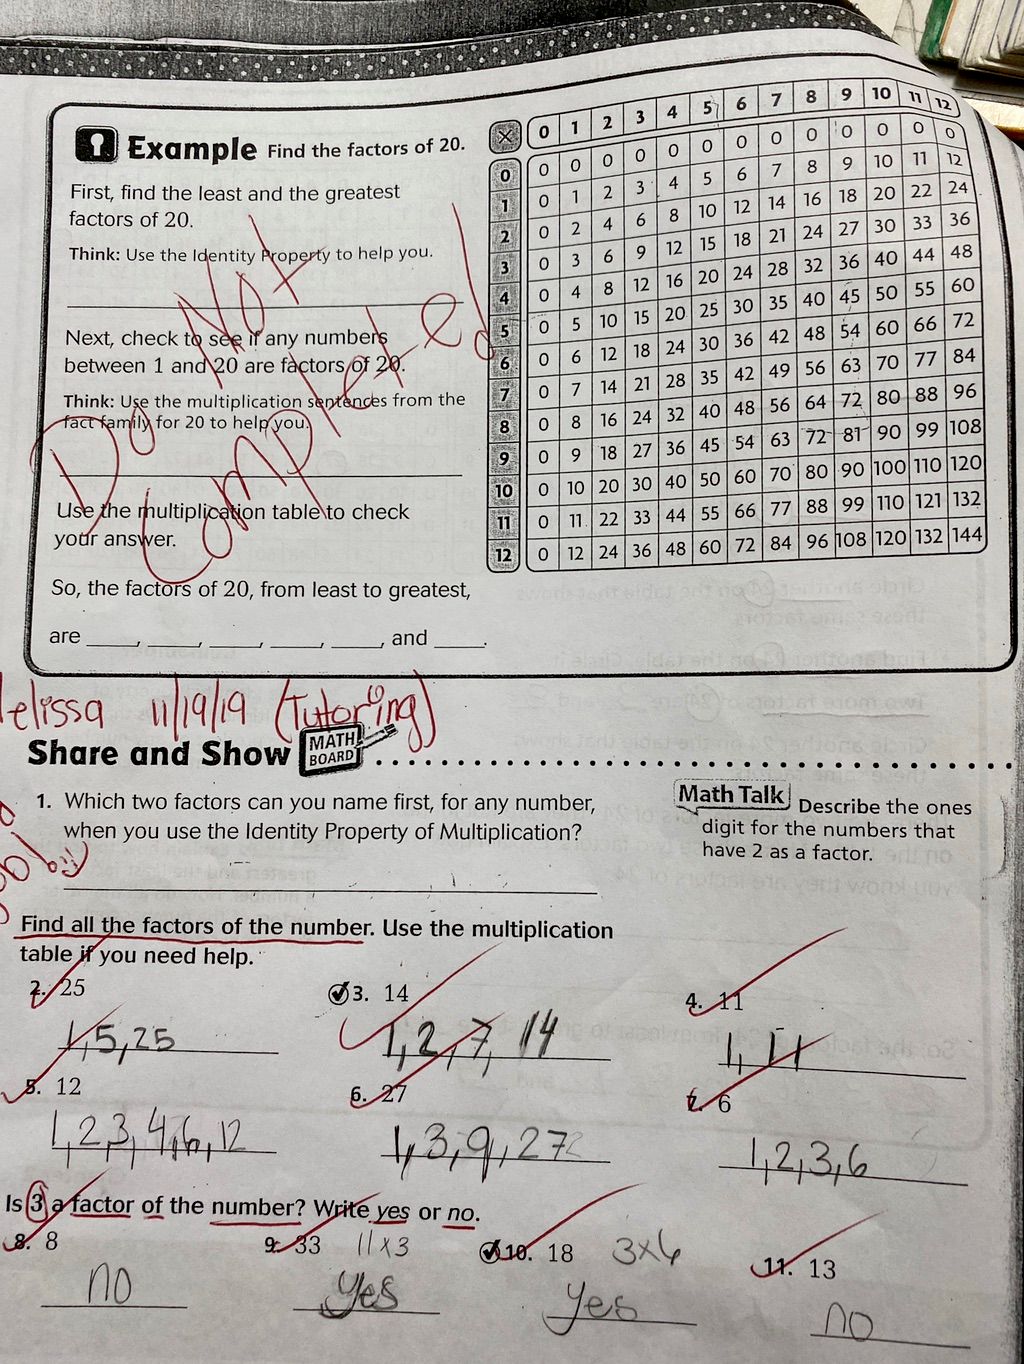 Example Find the factors of 20.
First, find the least and the greatest
factors of 20.
Think: Use the Identity Property to help you.
Next, check to see if any numbers
between 1 and 20 are factors of 20.
Think: Use the multiplication sentences from the
fact family for 20 to help you.
Use the multiplication table to check
your answer.
So, the factors of 20, from least to greatest,
are ____, ____, ____, ____, ____, and ____.
Do Not
Completed
× 0 1 2 3 4 5 6 7 8 9 10 11 12
0 0 0 0 0 0 0 0 0 0 0 0 0 0
1 0 1 2 3 4 5 6 7 8 9 10 11 12
2 0 2 4 6 8 10 12 14 16 18 20 22 24
3 0 3 6 9 12 15 18 21 24 27 30 33 36
4 0 4 8 12 16 20 24 28 32 36 40 44 48
5 0 5 10 15 20 25 30 35 40 45 50 55 60
6 0 6 12 18 24 30 36 42 48 54 60 66 72
7 0 7 14 21 28 35 42 49 56 63 70 77 84
8 0 8 16 24 32 40 48 56 64 72 80 88 96
9 0 9 18 27 36 45 54 63 72 81 90 99 108
10 0 10 20 30 40 50 60 70 80 90 100 110 120
11 0 11 22 33 44 55 66 77 88 99 110 121 132
12 0 12 24 36 48 60 72 84 96 108 120 132 144
elissa 11/19/19 (Tutoring)
Share and Show MATH BOARD
1. Which two factors can you name first, for any number,
when you use the Identity Property of Multiplication?
Math Talk Describe the ones
digit for the numbers that
have 2 as a factor.
Find all the factors of the number. Use the multiplication
table if you need help.
2. 25 3. 14 4. 11
1, 5, 25 1, 2, 7, 14 1, 11
5. 12 6. 27 7. 6
1, 2, 3, 4, 6, 12 1, 3, 9, 27 1, 2, 3, 6
Is 3 a factor of the number? Write yes or no.
8. 8 9. 33 11x3 10. 18 3x6 11. 13
no yes yes no